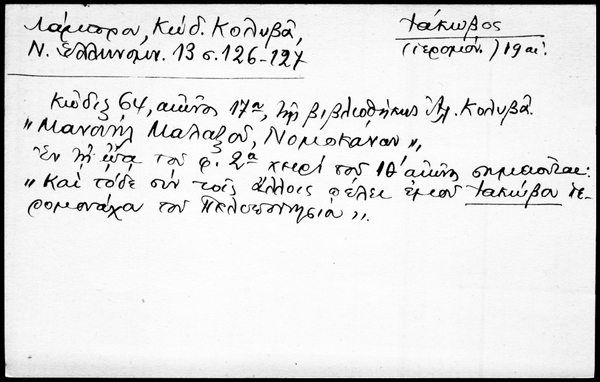 Λάμπρου, Κώδ. Κολυβᾶ,
Ν. Ἑλληνομν. 13 σ. 126-127
Ἰάκωβος
(ἱερομόν.) 19 αἰ.
Κῶδιξ 64, αἰῶνος 17ου, τῆς βιβλιοθήκης Ἀλ. Κολυβᾶ.
"Μανουὴλ Μαλαξοῦ, Νομοκάνων",
Ἐν τῇ ᾤᾳ τοῦ φ. 2α χειρὶ τοῦ ΙΘ' αἰῶνος σημειοῦται:
"Καὶ τόδε σὺν τοῖς ἄλλοις πέλει ἐμοῦ Ἰακώβου ἱε-
ρομονάχου τοῦ Πελοποννησίου".